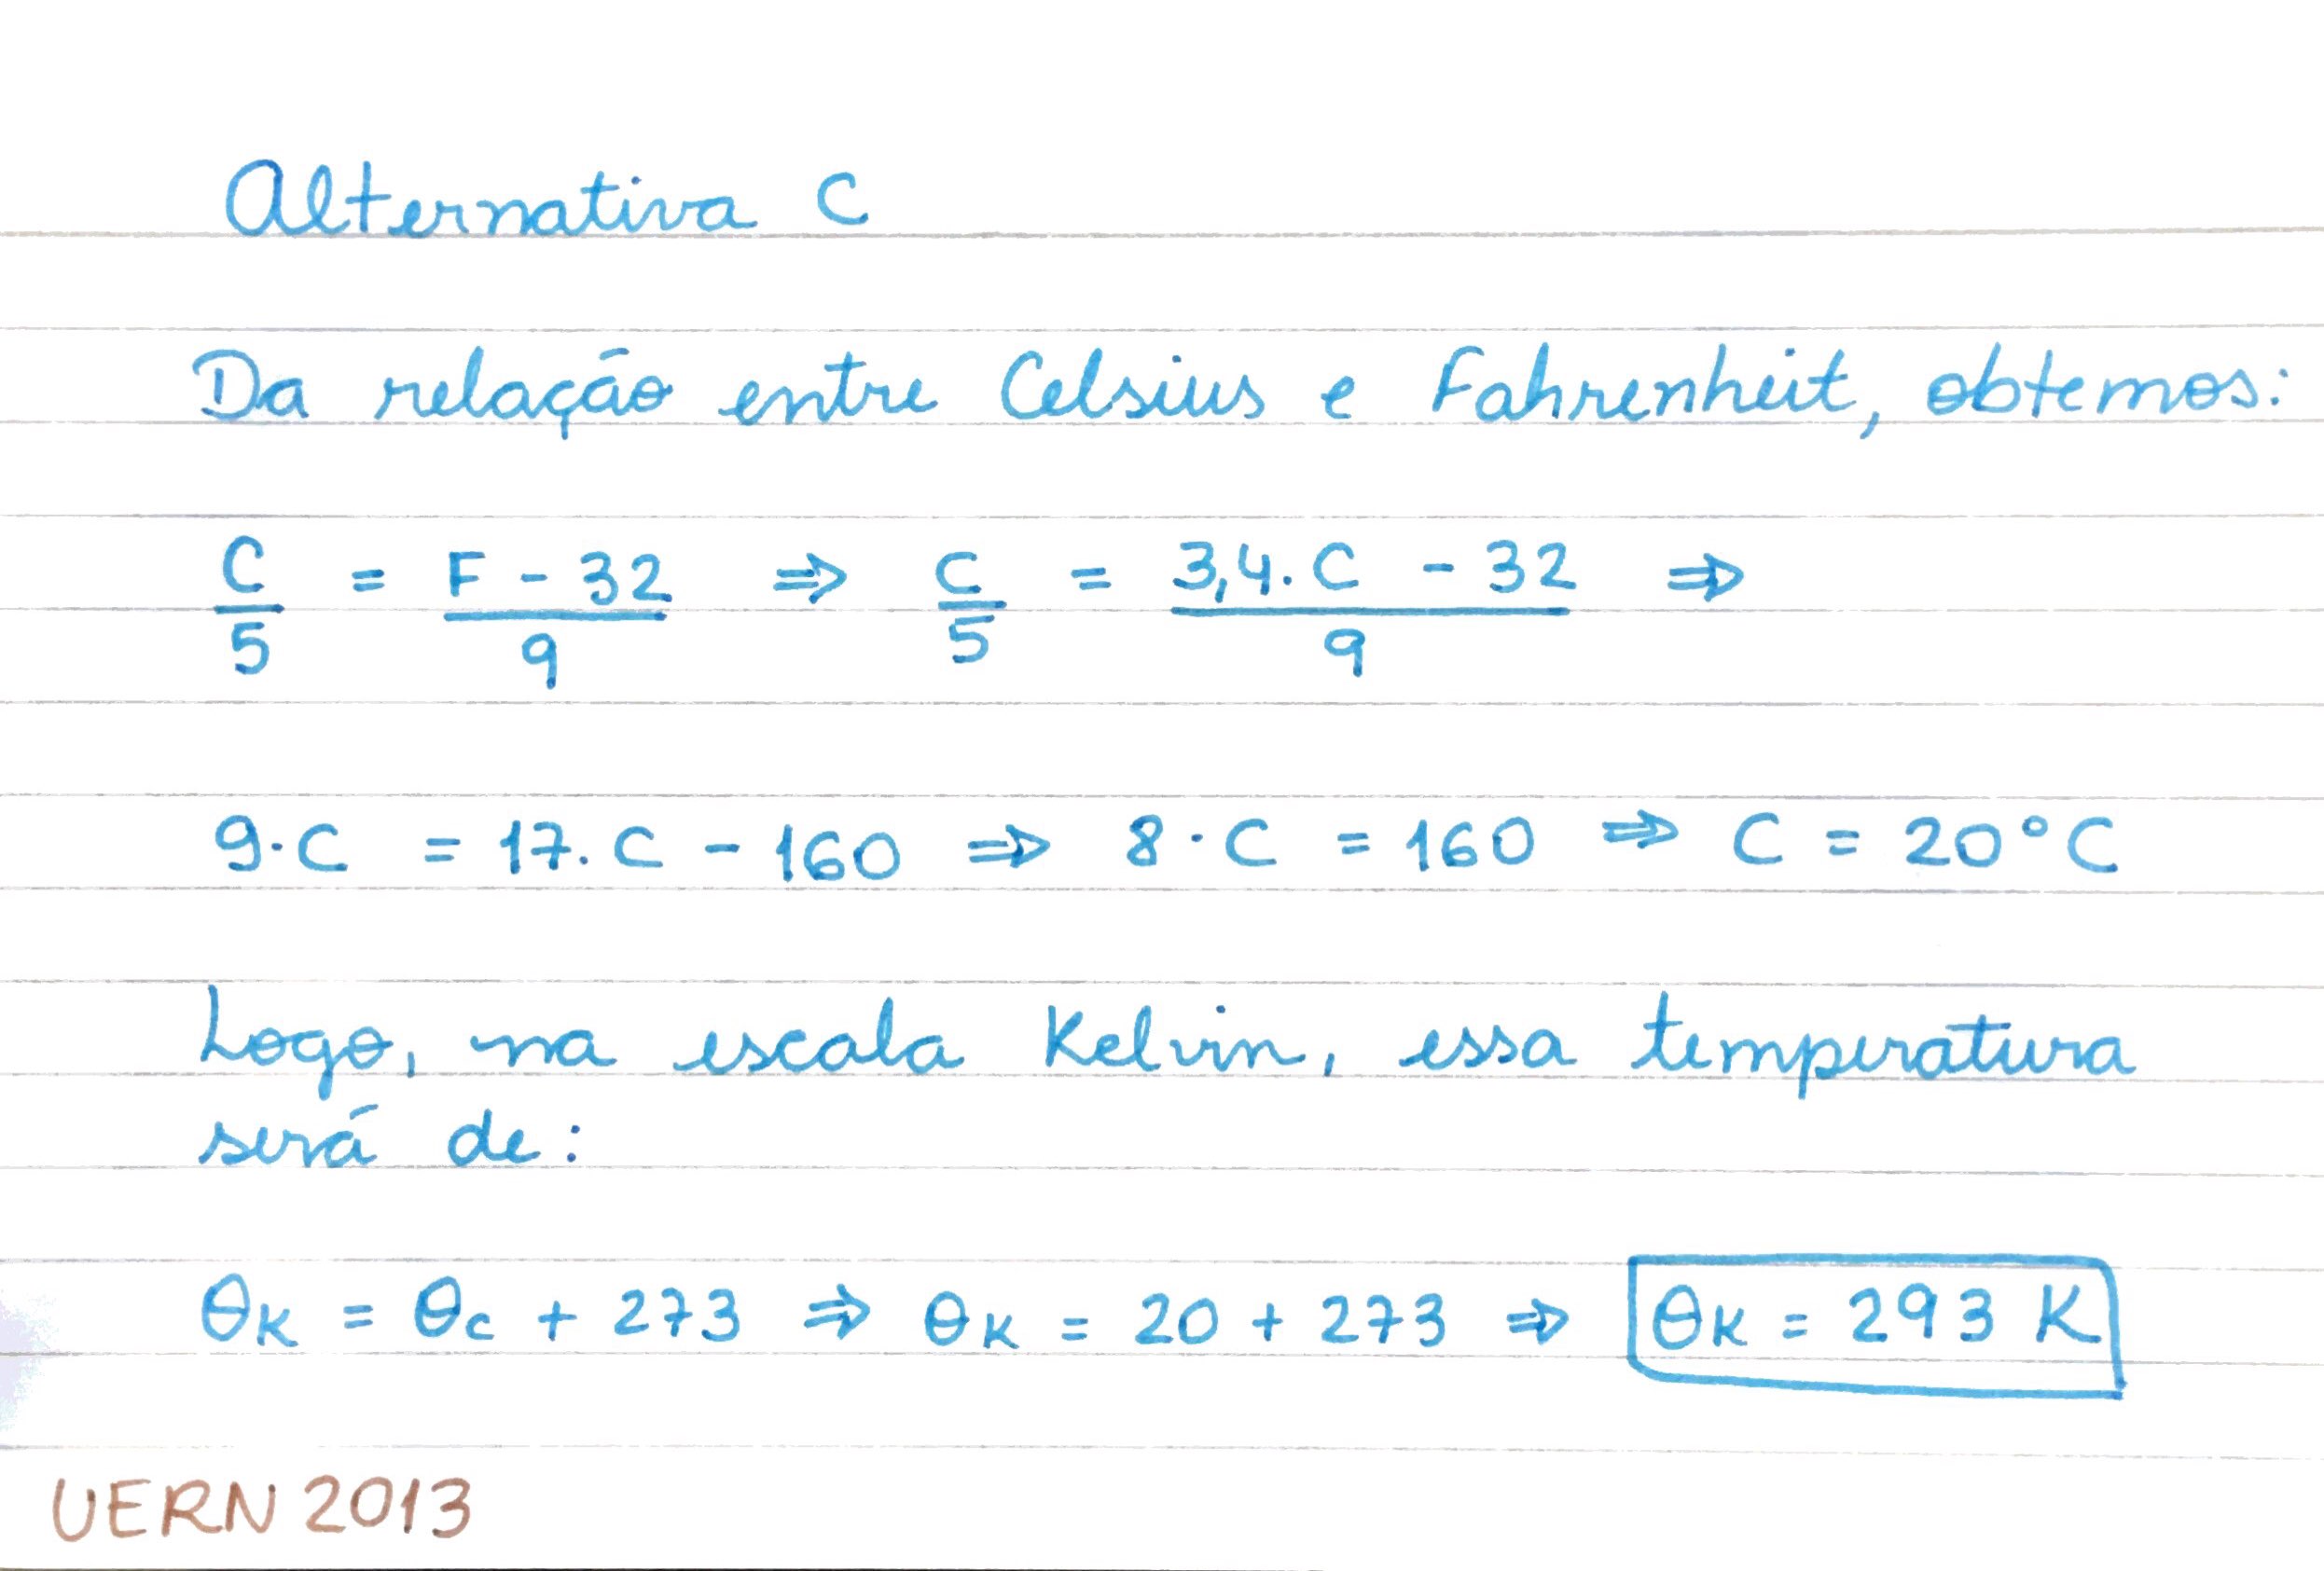 Alternativa C
Da relação entre Celsius e Fahrenheit, obtemos:
C/5 = (F - 32)/9 ⇒ C/5 = (3,4. C - 32)/9 ⇒
9·C = 17. C - 160 ⇒ 8 · C = 160 ⇒ C = 20°C
Logo, na escala Kelvin, essa temperatura
será de:
θK = θc + 273 ⇒ θK = 20 + 273 ⇒ θK = 293 K
UERN 2013